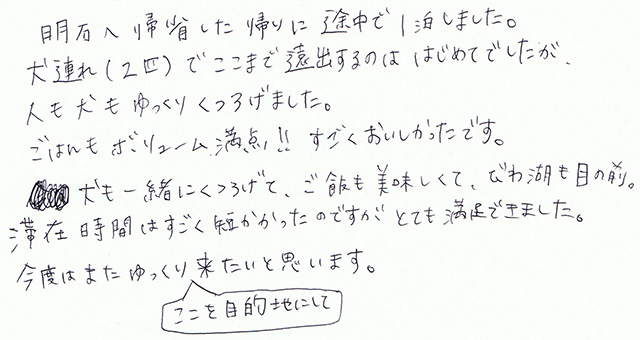 明石へ帰省した帰りに途中で1泊しました。
犬連れ(2匹)でここまで遠出するのははじめてでしたが、
人も犬もゆっくりくつろげました。
ごはんもボリューム満点!! すごくおいしかったです。
犬も一緒にくつろげて、ご飯も美味しくて、びわ湖も目の前。
滞在時間はすごく短かかったのですがとても満足できました。
今度はまたゆっくり来たいと思います。
ここを目的地にして